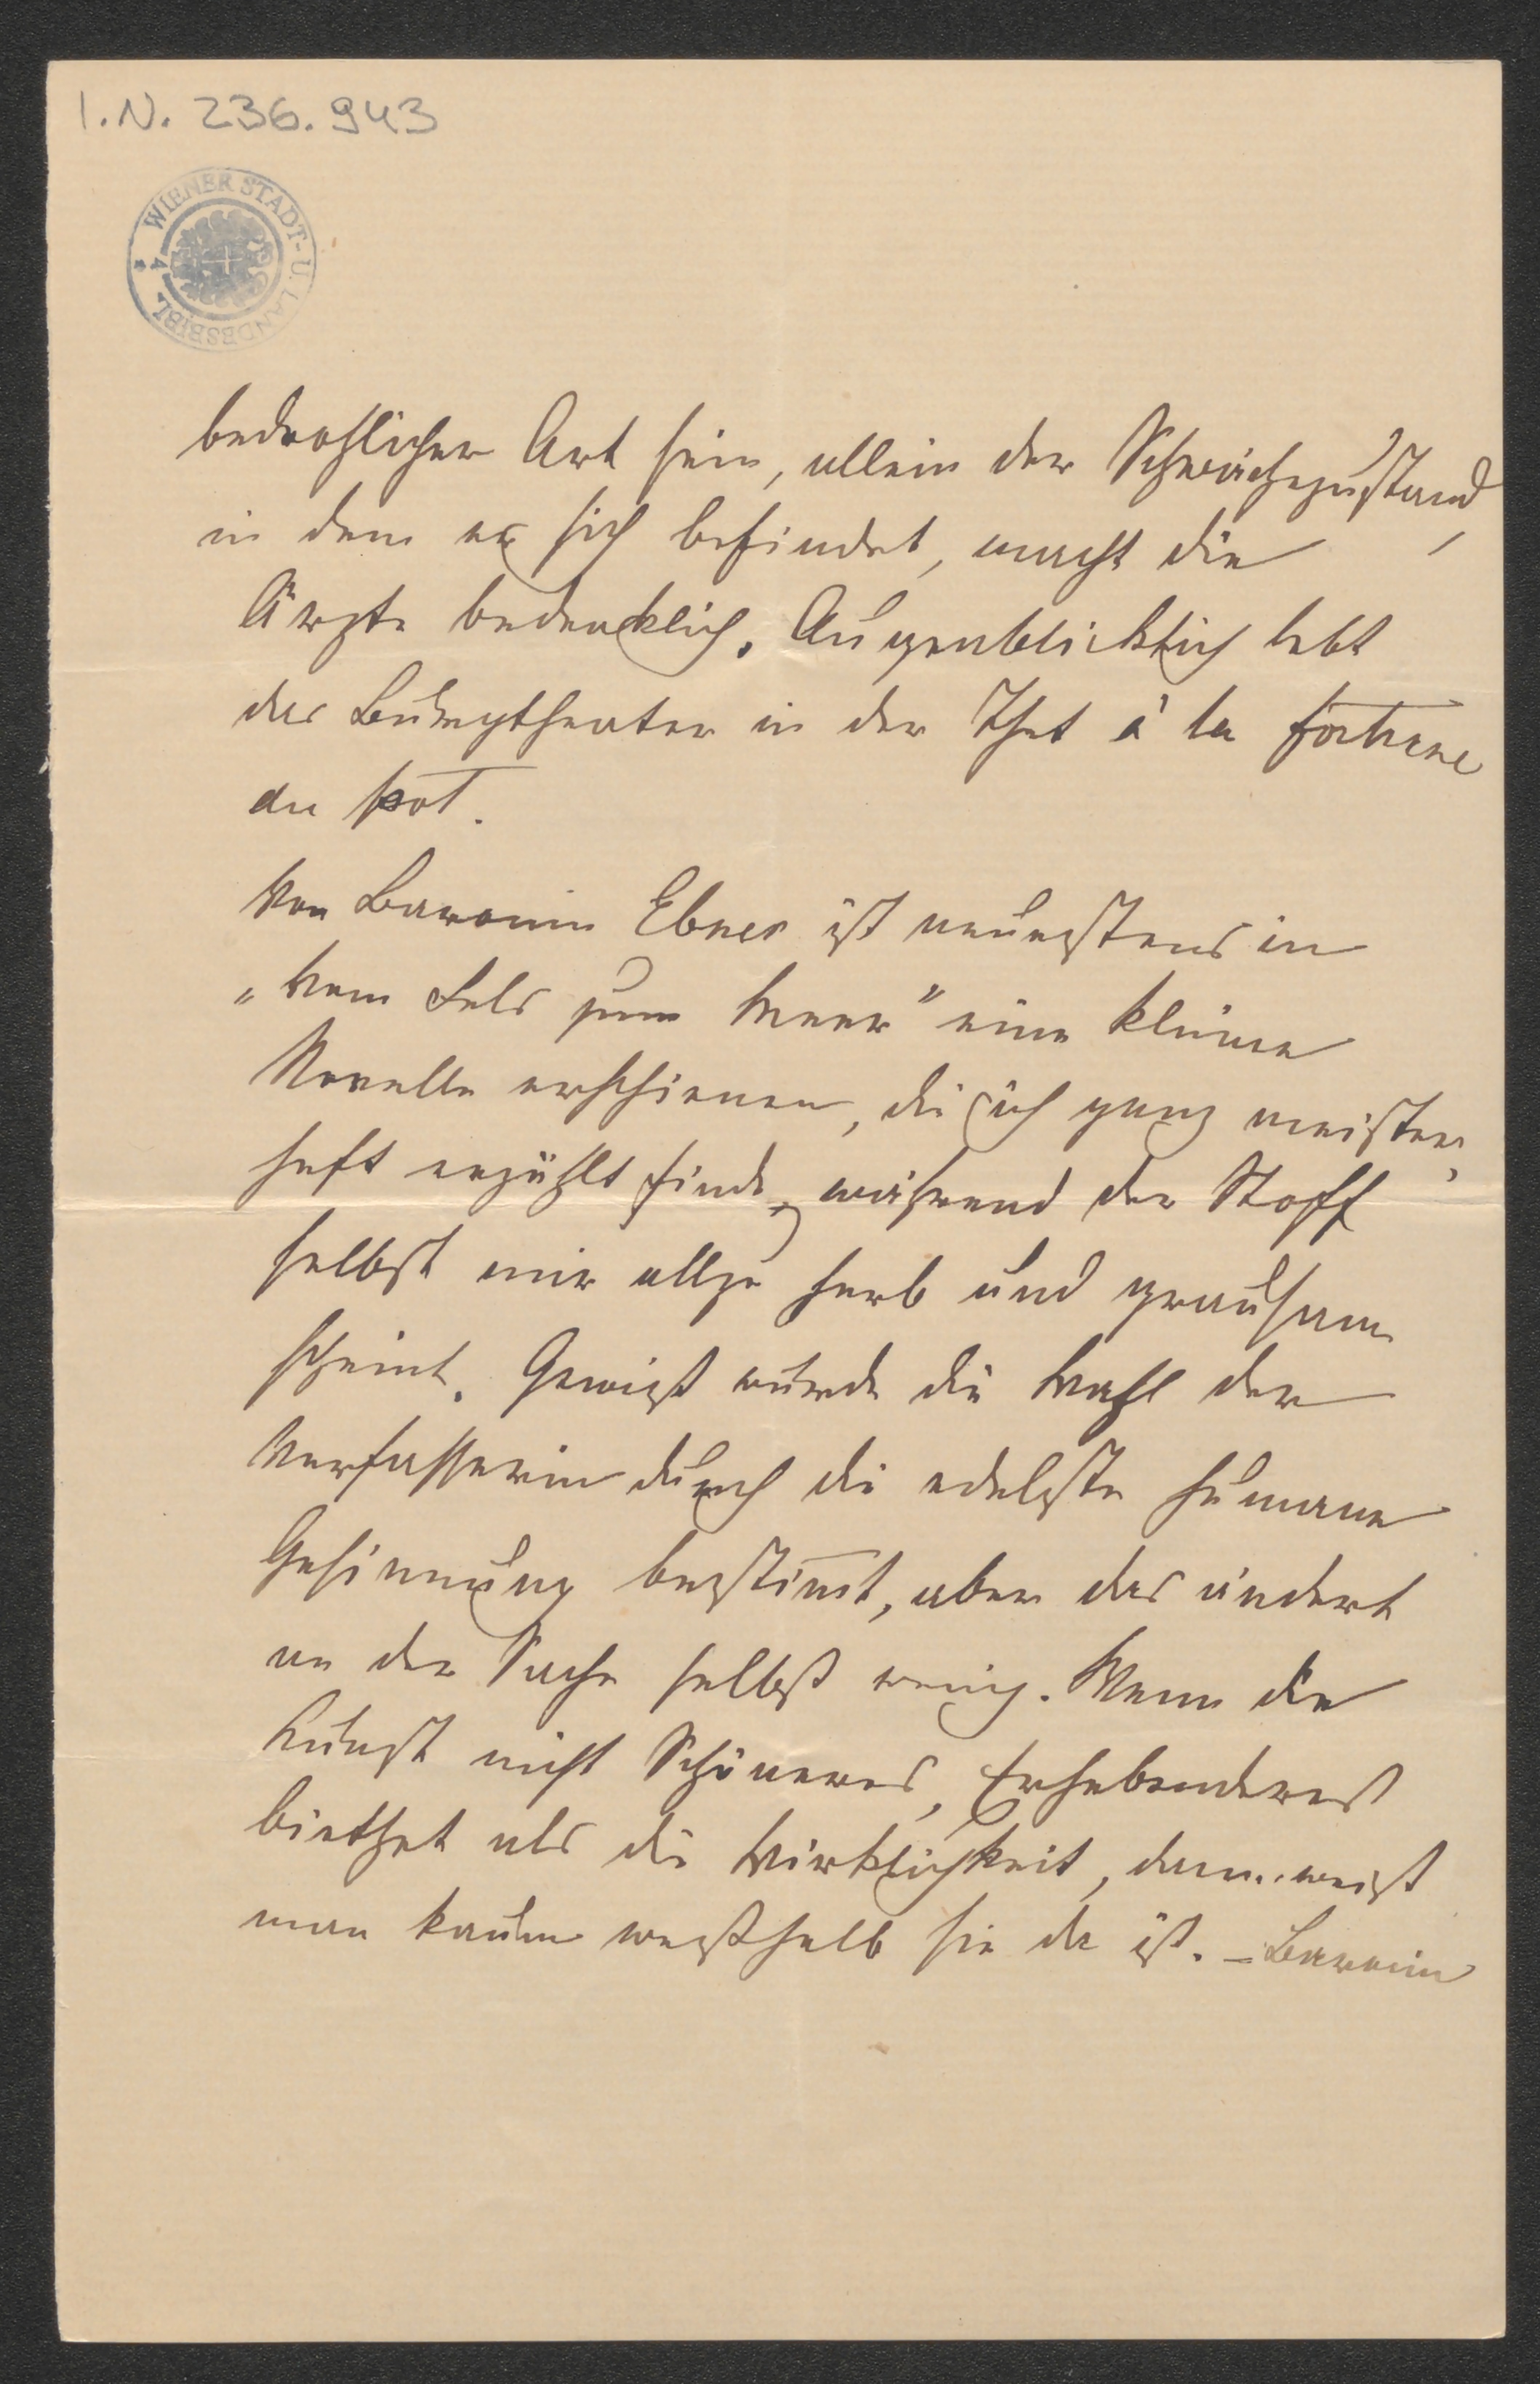 I.N. 236.943
WIENER STADT- U. LANDESBIBL.
bedrohlicher Art sein, allein der Schwächezustand,
in dem er sich befindet, macht die
Ärzte bedencklich. Augenblicklich lebt
das Burgtheater in der That à la fortune
du pot.
Von Baronin Ebner ist neuestens in
„Vom Fels zum Meer" eine kleine
Novelle erschienen, die ich ganz meister-
haft erzählt finde, während der Stoff
selbst mir allzu herb und grausam
scheint. Gewiß wurde die Wahl der
Verfasserin durch die edelste humane
Gesinnung bestimt, aber das ändert
an der Sache selbst wenig. Wenn die
Kunst nicht Schöneres, Erhebenderes
biethet als die Wirklichkeit, dann weiß
man kaum weßhalb sie da ist. – Baronin